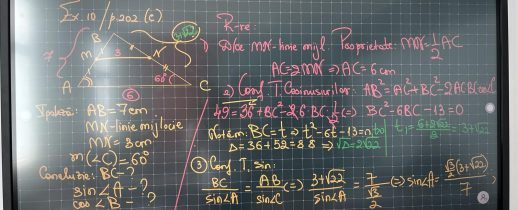 Ex.10 / p.202 (c)
B
4√22
7
M
3
N
60°
A
C
6
Ipoteză: AB=7cm
MN-linie mijlocie
MN=3cm
m(∠C)=60°
Concluzie: BC-?
sin∠A-?
cos∠B-?
R-re:
1) D/ce MN-linie mijl. Proprietate: MN=1/2 AC
AC=2MN => AC=6cm
2) Conf. T. Cosinusurilor: AB²=AC²+BC²-2AC·BC·cosC
49=36+BC²-2·6·BC·1/2 (=) BC²-6BC-13=0
Notăm: BC=t => t²-6t-13=0
Δ=36+52=88 => √Δ=2√22
t₁=(6+2√22)/2=3+√22
3) Conf. T. sin:
BC/sin∠A = AB/sin∠C (=) (3+√22)/sin∠A = 7/(√3/2) (=) sin∠A= (√3/2 (3+√22))/7